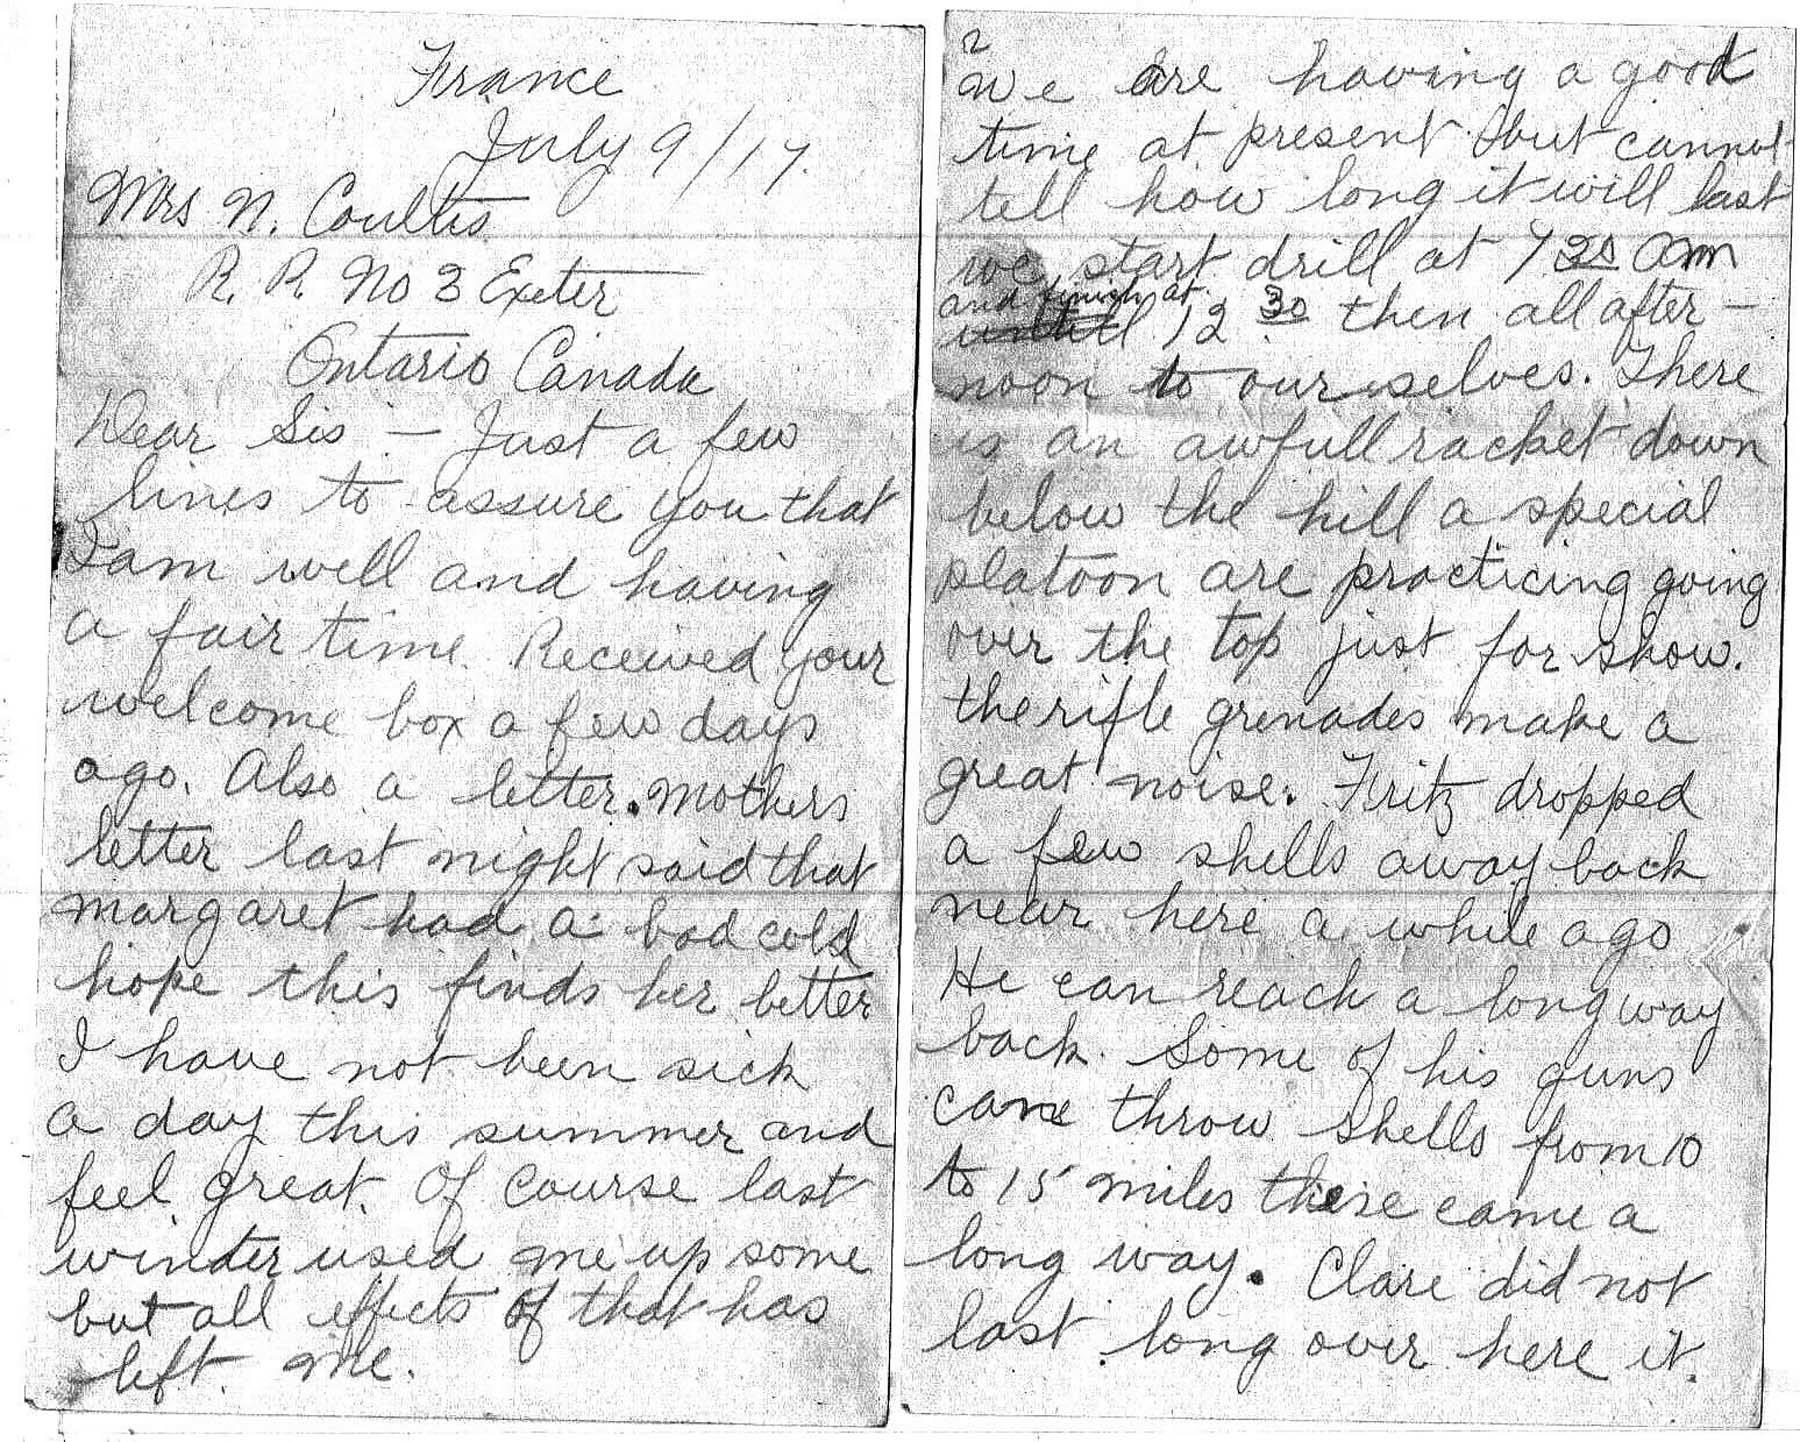 France
July 9/17.
Mrs N. Coultis
R. R. No 3 Exeter
Ontario Canada
Dear Sis – Just a few
lines to assure you that
I am well and having
a fair time. Received your
welcome box a few days
ago. Also a letter. Mothers
letter last night said that
Margaret had a bad cold
hope this finds her better
I have not been sick
a day this summer and
feel great. Of course last
winter used me up some
but all effects of that has
left me.
2
We are having a good
time at present but cannot
tell how long it will last
we start drill at 7 30 am
and finish at
until 12 30 then all after-
noon to ourselves. There
is an awfull racket down
below the hill a special
platoon are practicing going
over the top just for show.
the rifle grenades make a
great noise. Fritz dropped
a few shells away back
near here a while ago
He can reach a long way
back. Some of his guns
cane throw shells from 10
to 15 miles these came a
long way. Clare did not
last long over here it.